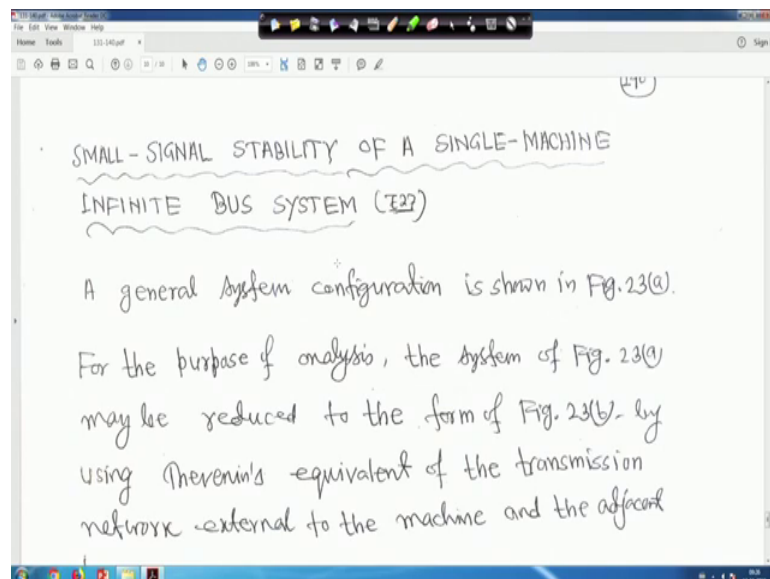 131-140.pdf - Adobe Acrobat Reader DC
File Edit View Window Help
Home Tools 131-140.pdf × Sign
10 / 10
140
SMALL-SIGNAL STABILITY OF A SINGLE-MACHINE
INFINITE BUS SYSTEM
A general system configuration is shown in Fig. 23(a).
For the purpose of analysis, the system of Fig. 23(a)
may be reduced to the form of Fig. 23(b) by
using Thevenin's equivalent of the transmission
network external to the machine and the adjacent